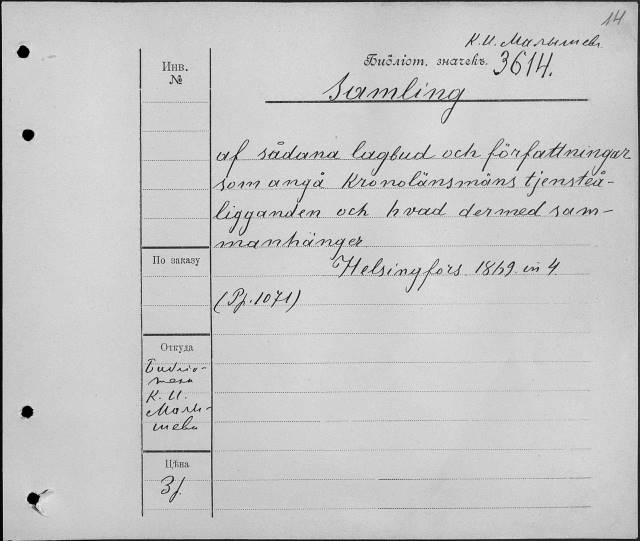 14
К. И. Малышев
Инв.
№
Библіот. значекъ. 3614.
Samling
af sådana lagbud och författningar
som angå Kronolänsmäns tjensteå-
ligganden och hvad dermed sam-
manhänger
По заказу
Helsingfors 1869 in 4
(Pp. 1071)
Откуда
Библіо-
тека
К. И.
Малы-
шева
Цѣна
3 р.